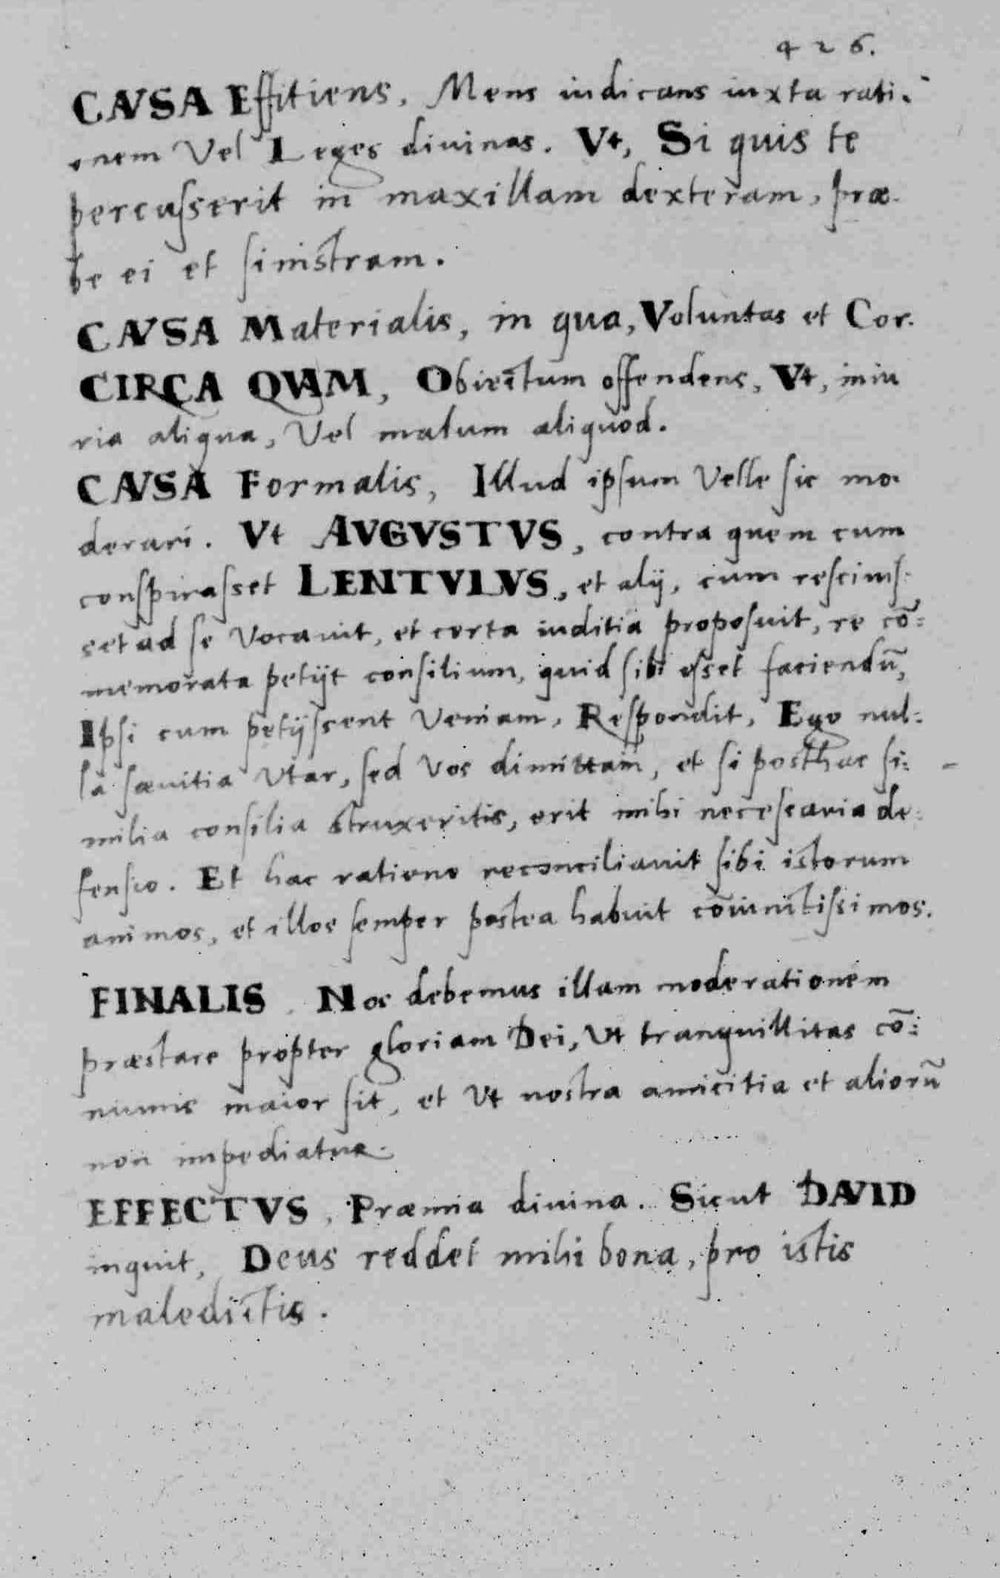 426.
CAVSA Effitiens, Mens iudicans iuxta rati-
onem Vel Leges divinas. Vt, Si quis te
percusserit in maxillam dexteram, præ-
be ei et sinistram.
CAVSA Materialis, in qua, Voluntas et Cor.
CIRCA QVAM, Obiectum offendens, Vt, iniu
ria aliqua, Vel malum aliquod.
CAVSA Formalis, Illud ipsum Velle sic mo-
derari. Vt AVGVSTVS, contra quem cum
conspirasset LENTVLVS, et alij, cum rescivis-
set ad se vocavit, et certa inditia proposuit, re cō:
memorata petijt consilium, quid sibi esset faciendū,
Ipsi cum petijssent veniam, Respondit, Ego nul:
la sævitia Vtar, sed Vos dimittam, et si posthac si:
milia consilia struxeritis, erit mihi necessaria de:
fensio. Et hac ratione reconciliavit sibi istorum
animos, et illos semper postea habuit cōiunctissimos.
FINALIS. Nos debemus illam moderationem
præstare propter gloriam Dei, Vt tranquillitas cō:
munis maior sit, et Vt nostra amicitia et aliorū
non impediatur.
EFFECTVS, Præmia divina. Sicut DAVID
inquit, Deus reddet mihi bona, pro istis
maledictis.